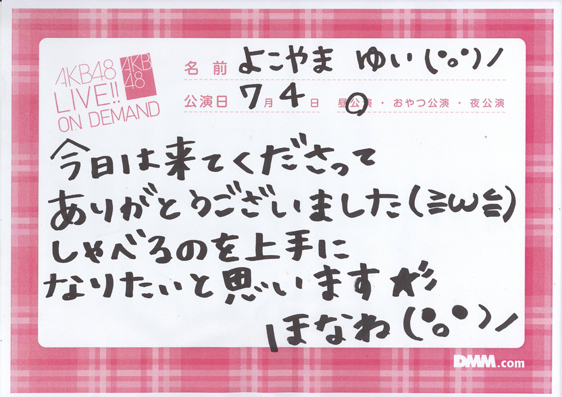 AKB48
LIVE!!
ON DEMAND
AKB
48
名前 よこやま ゆい(°o°)ノ
公演日 7月4日 昼公演・おやつ公演・夜公演
今日は来てくださって
ありがとうございました(≧ω≦)
しゃべるのを上手に
なりたいと思います★彡
ほなね(°o°)ノ
DMM.com